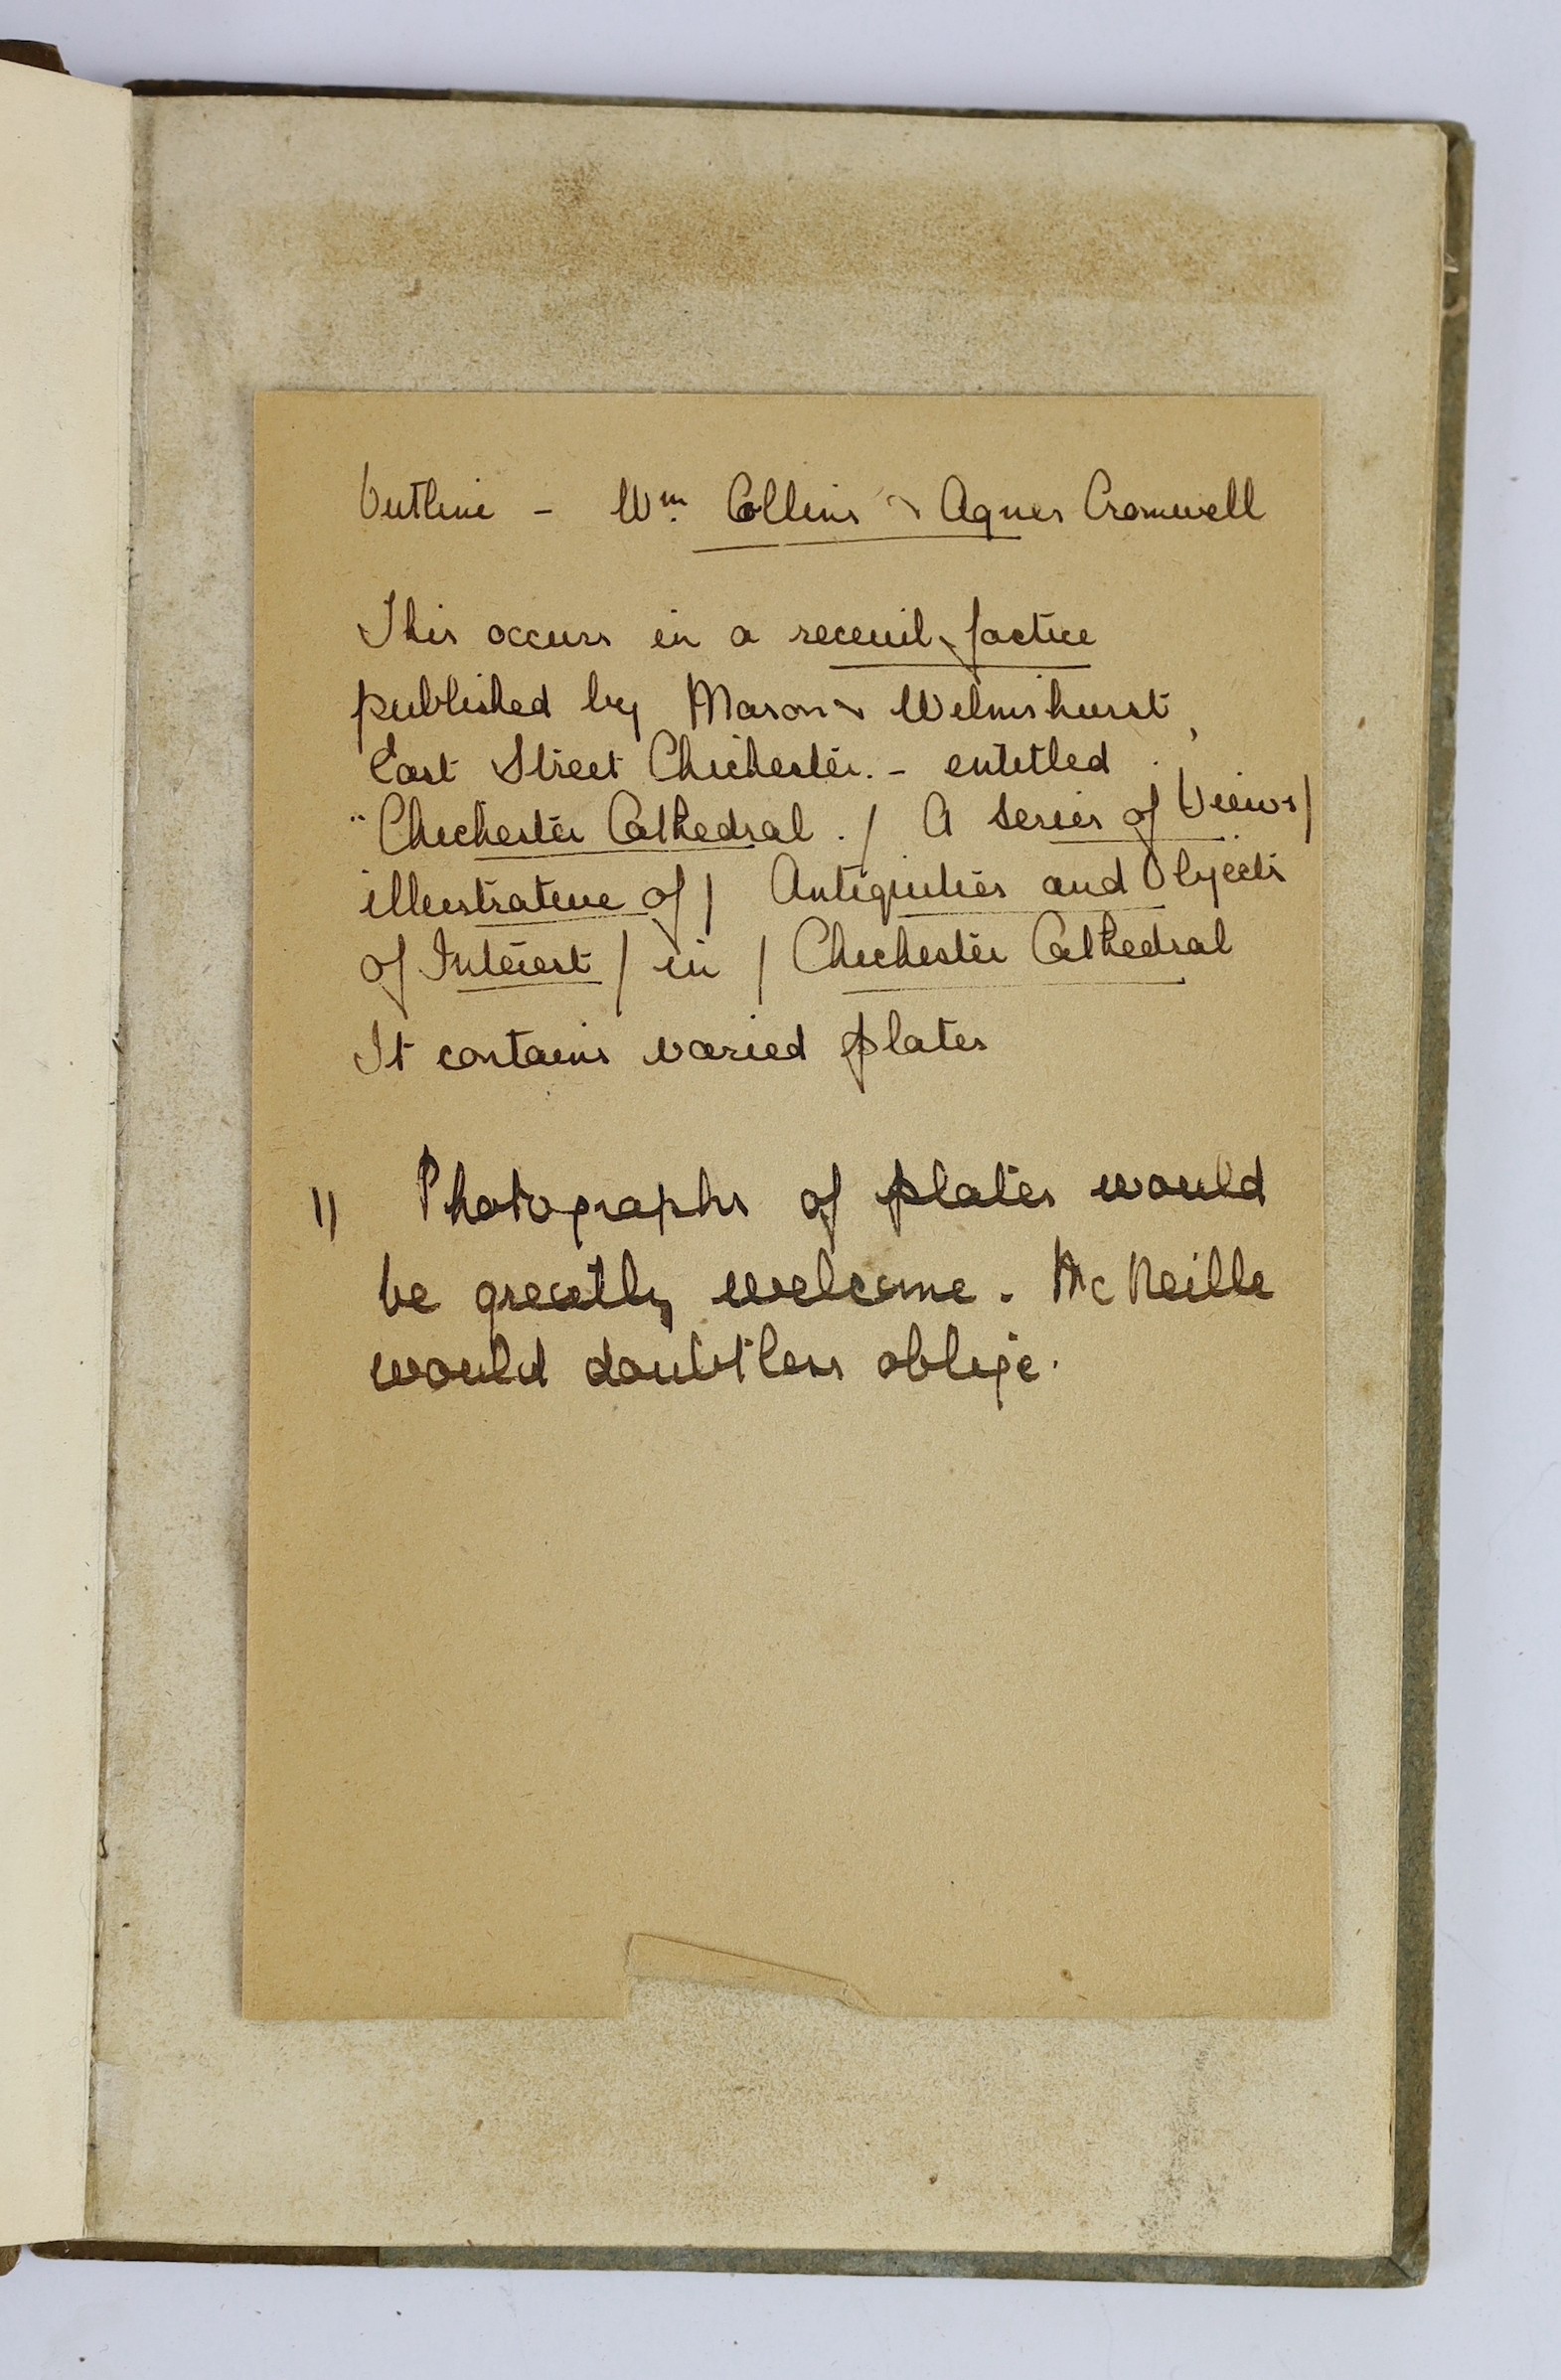 Outline - Wm. Collins & Agnes Cromwell
This occurs in a receuil factice
published by Mason & Wilmshurst,
East Street Chichester. - entitled
"Chichester Cathedral. / A Series of Views /
illustrative of / Antiquities and Objects
of Interest / in / Chichester Cathedral
It contains varied plates
11 Photographs of plates would
be greatly welcome. McNeille
would doubtless oblige.